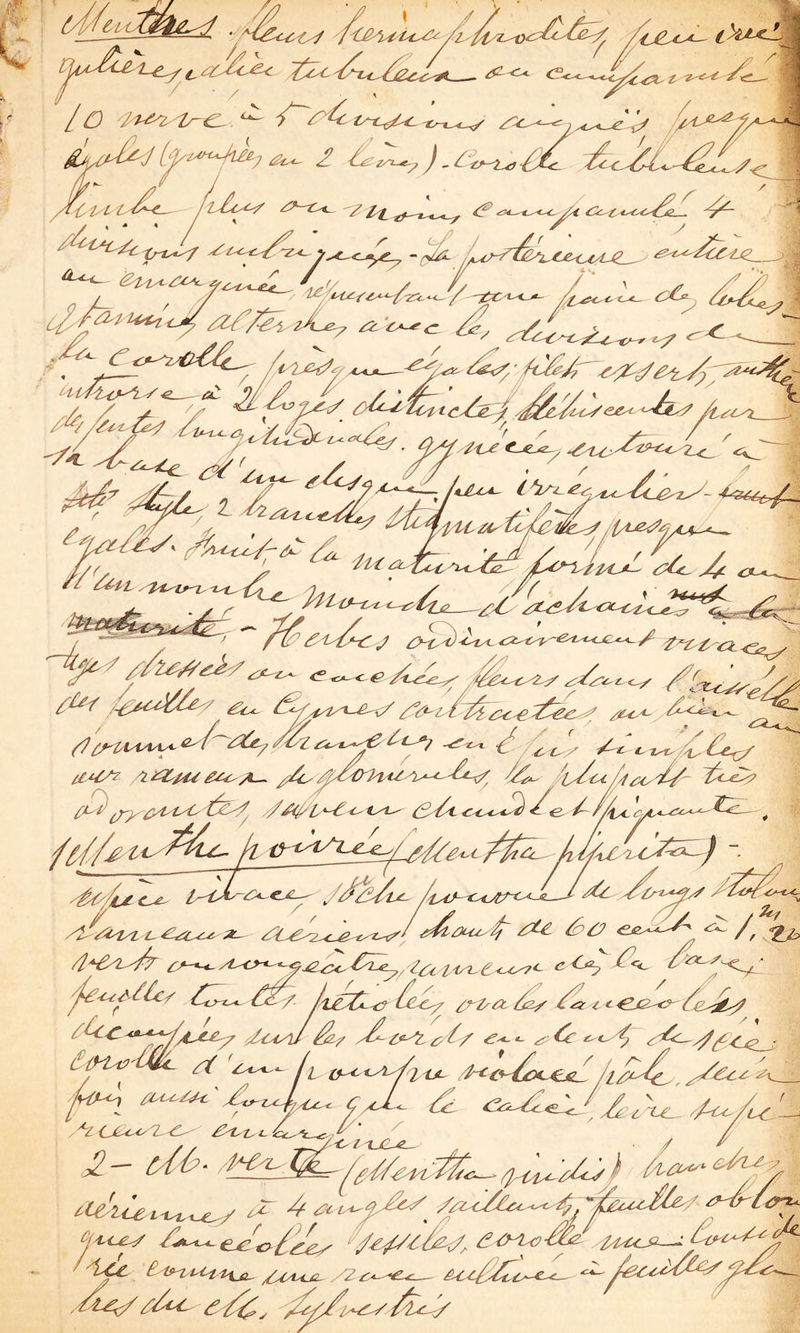 Menthes. fleurs hermaphrodites, peu irré-
gulières, calice tubuleux ou campanulé
10 nervé à 5 divisions aiguës, presque
égales (groupées en 2 lèvres). Corolle tubuleuse
limbe plus ou moins campanulé 4
divisions imbriquées - La postérieure entière
ou émarginée, représentant une paire de lobes
Etamines alternes avec les divisions de
la corolle, presque égales; filets exserts, anthère
introrse à 2 loges distinctes, déhiscentes par
des fentes longitudinales. gynécée, entouré à
sa base d'un disque peu irrégulier - fruit
Style, 2 branches stigmatifères, presque
égales. Fruit à la maturité formé de 4 ou
d'un nombre moindre d'achaines à la
maturité. - Herbes ordinairement vivaces,
tiges dressées ou couchées, fleurs dans l'aisselle
des feuilles en Cymes contractées, ou bien au
sommet des branches en épis simples
aux rameaux de glomérules, la plupart très
odorantes, saveur chaude et piquante.
1 Menthe poivrée (Mentha piperita) -
espèce vivace, souche pourvue de longs stolons
rameaux aériens, hauts de 60 cent à 1,m 20
verts ou rougeâtres, rameux dès la base;
feuilles toutes pétiolées, ovales lancéolées,
découpées sur les bords en dents de scie
corolle d'un pourpre violacé pâle, deux
fois aussi longue que le calice, lèvre supé-
rieure émarginée
2 - M. verte (Mentha viridis) branches
aériennes à 4 angles saillants, feuilles oblon
gues lancéolées sessiles, corolle nue. Considé
rée comme une race cultivée à feuilles gla-
bres du M. Sylvestris